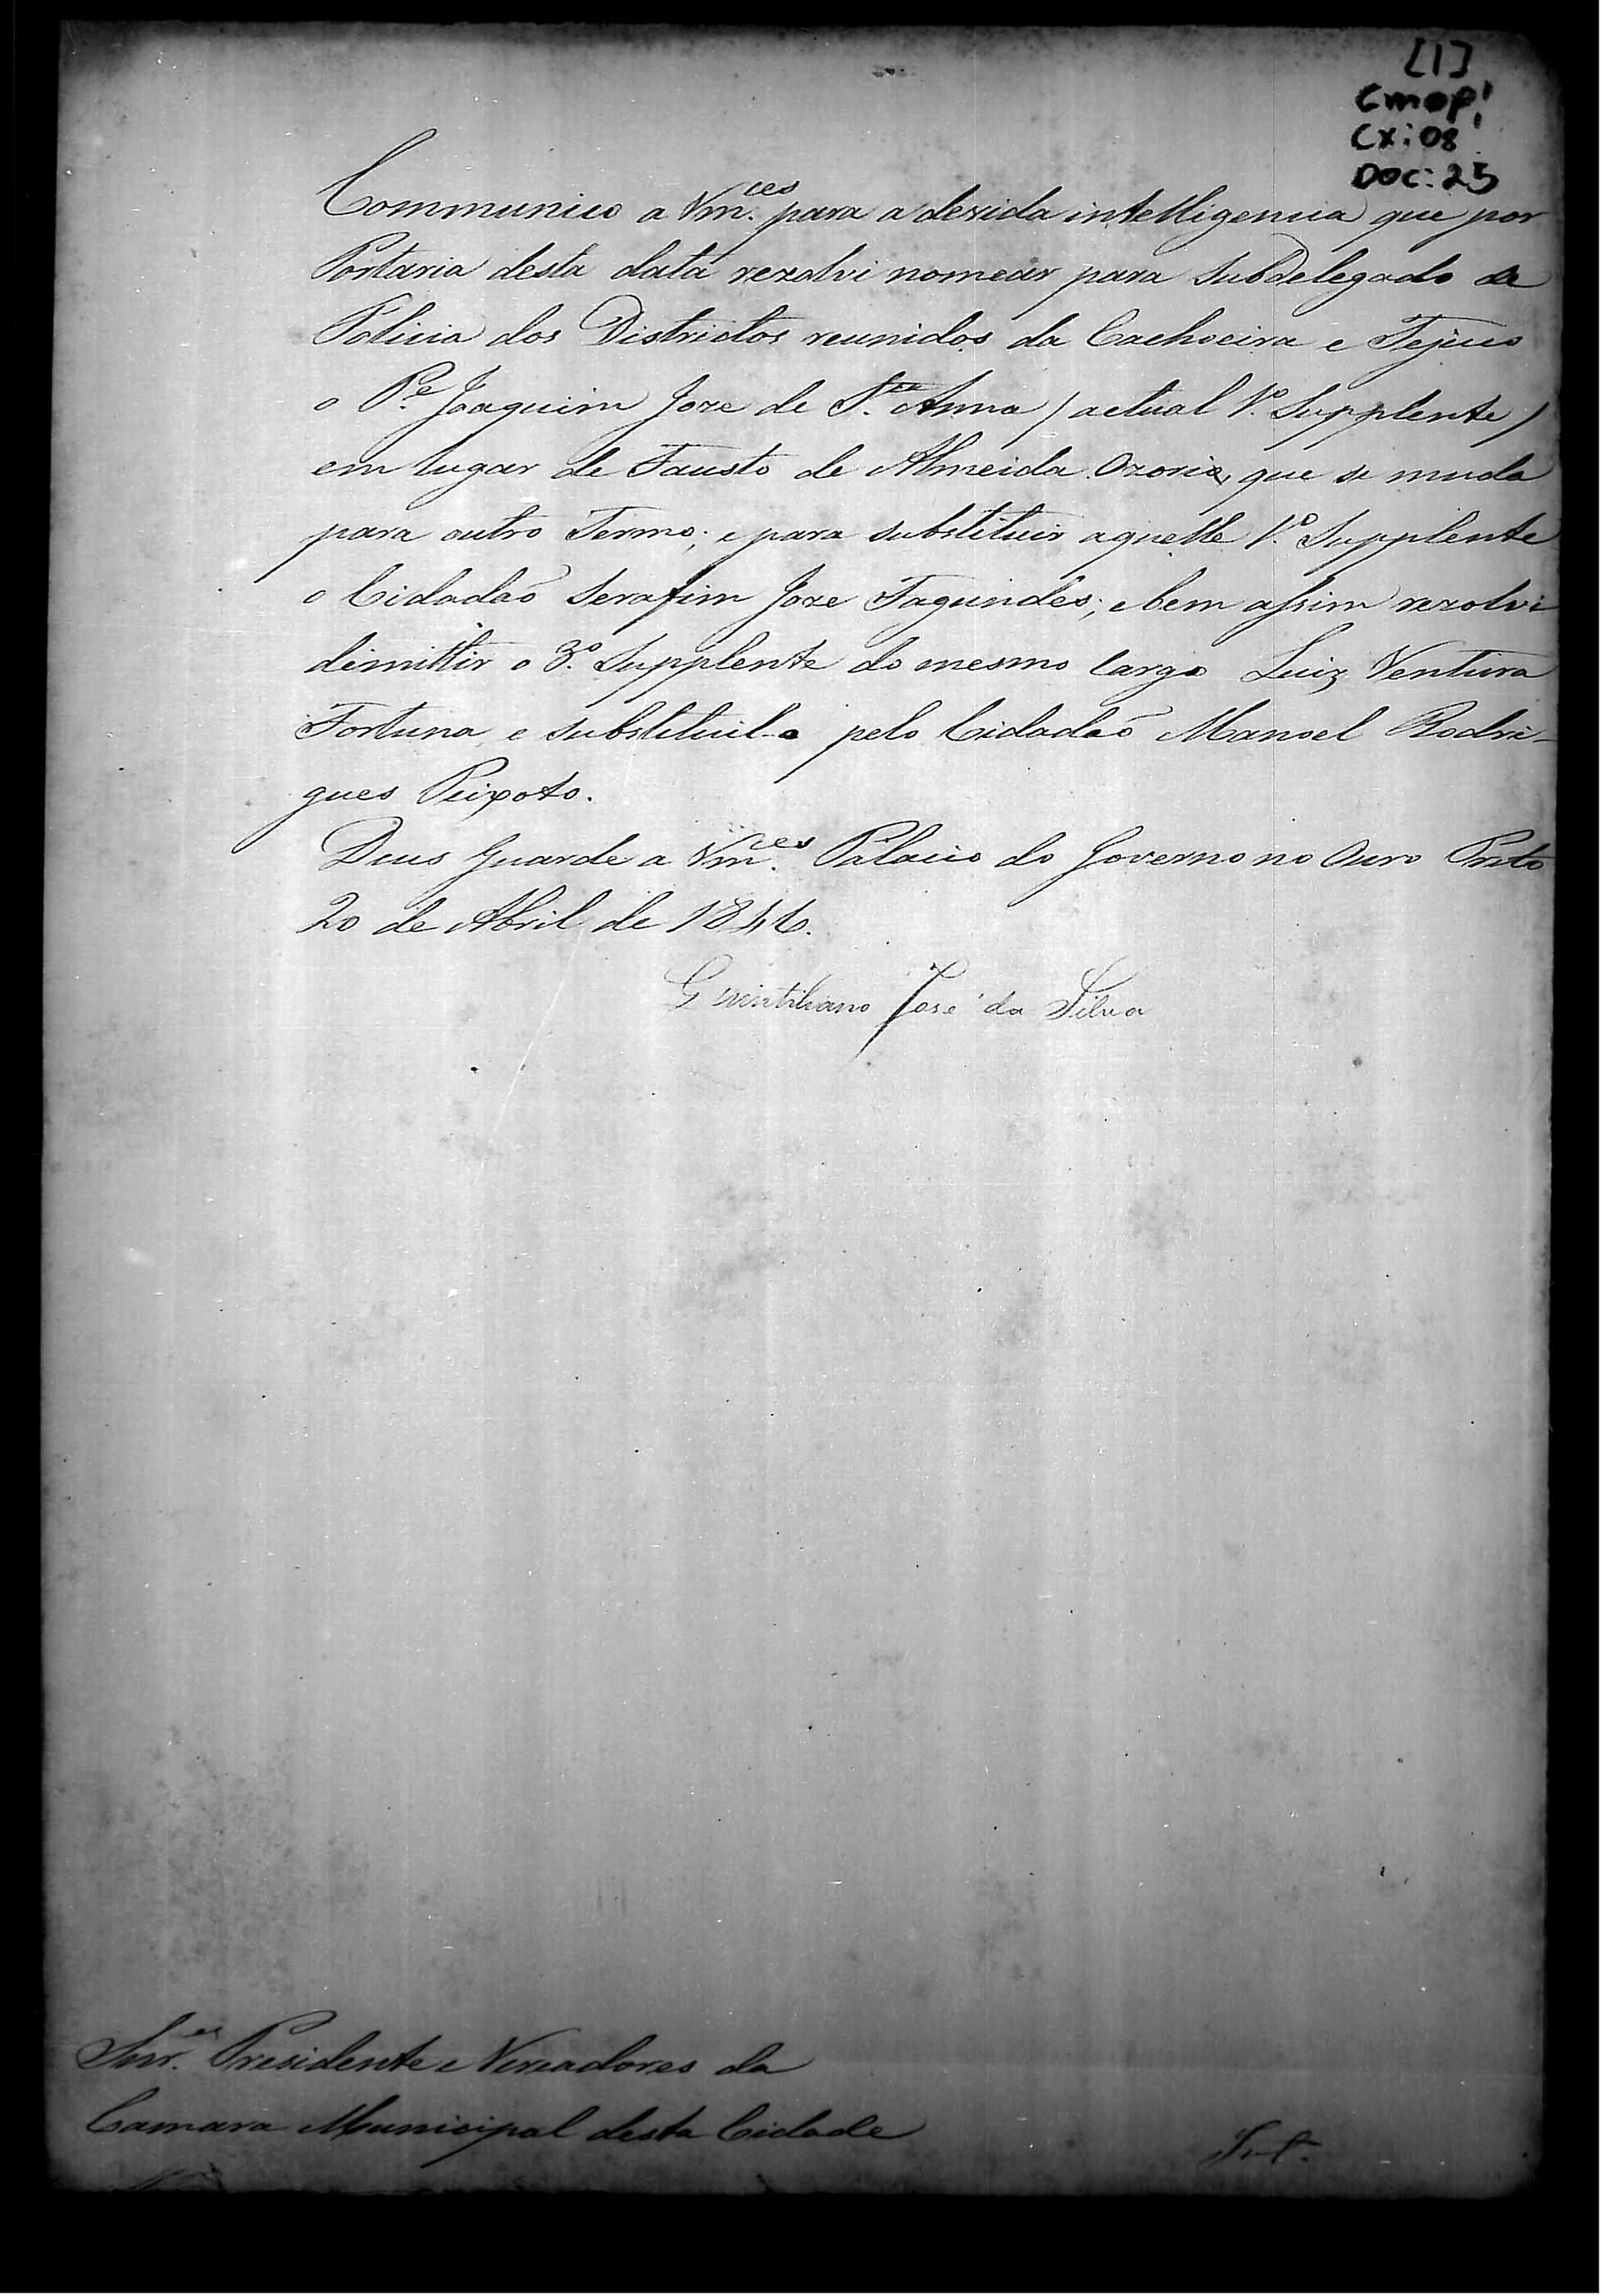 [1]
CMOP!
CX: 08
DOC: 25
Communico a Vm.ces para a devida intelligencia que por
Portaria desta data rezolvi nomear para Subdelegado de
Policia dos Districtos reunidos da Cachoeira e Tejuco
o P.e Joaquim Joze de S.ta Anna / actual 1.º Supplente /
em lugar de Fausto de Almeida Ozorio, que se muda
para outro Termo; e para substituir aquelle 1.º Supplente
o Cidadaõ Serafim Joze Fagundes; e bem assim rezolvi
dimittir o 3.º Supplente do mesmo cargo Luiz Ventura
Fortuna, e substituil-o pelo Cidadaõ Manoel Rodri-
gues Peixoto.
Deus Guarde a Vm.ces Palacio do Governo no Ouro Preto
20 de Abril de 1846.
Quintiliano José da Silva
Snr.es Presidente e Vereadores da
Camara Municipal desta Cidade